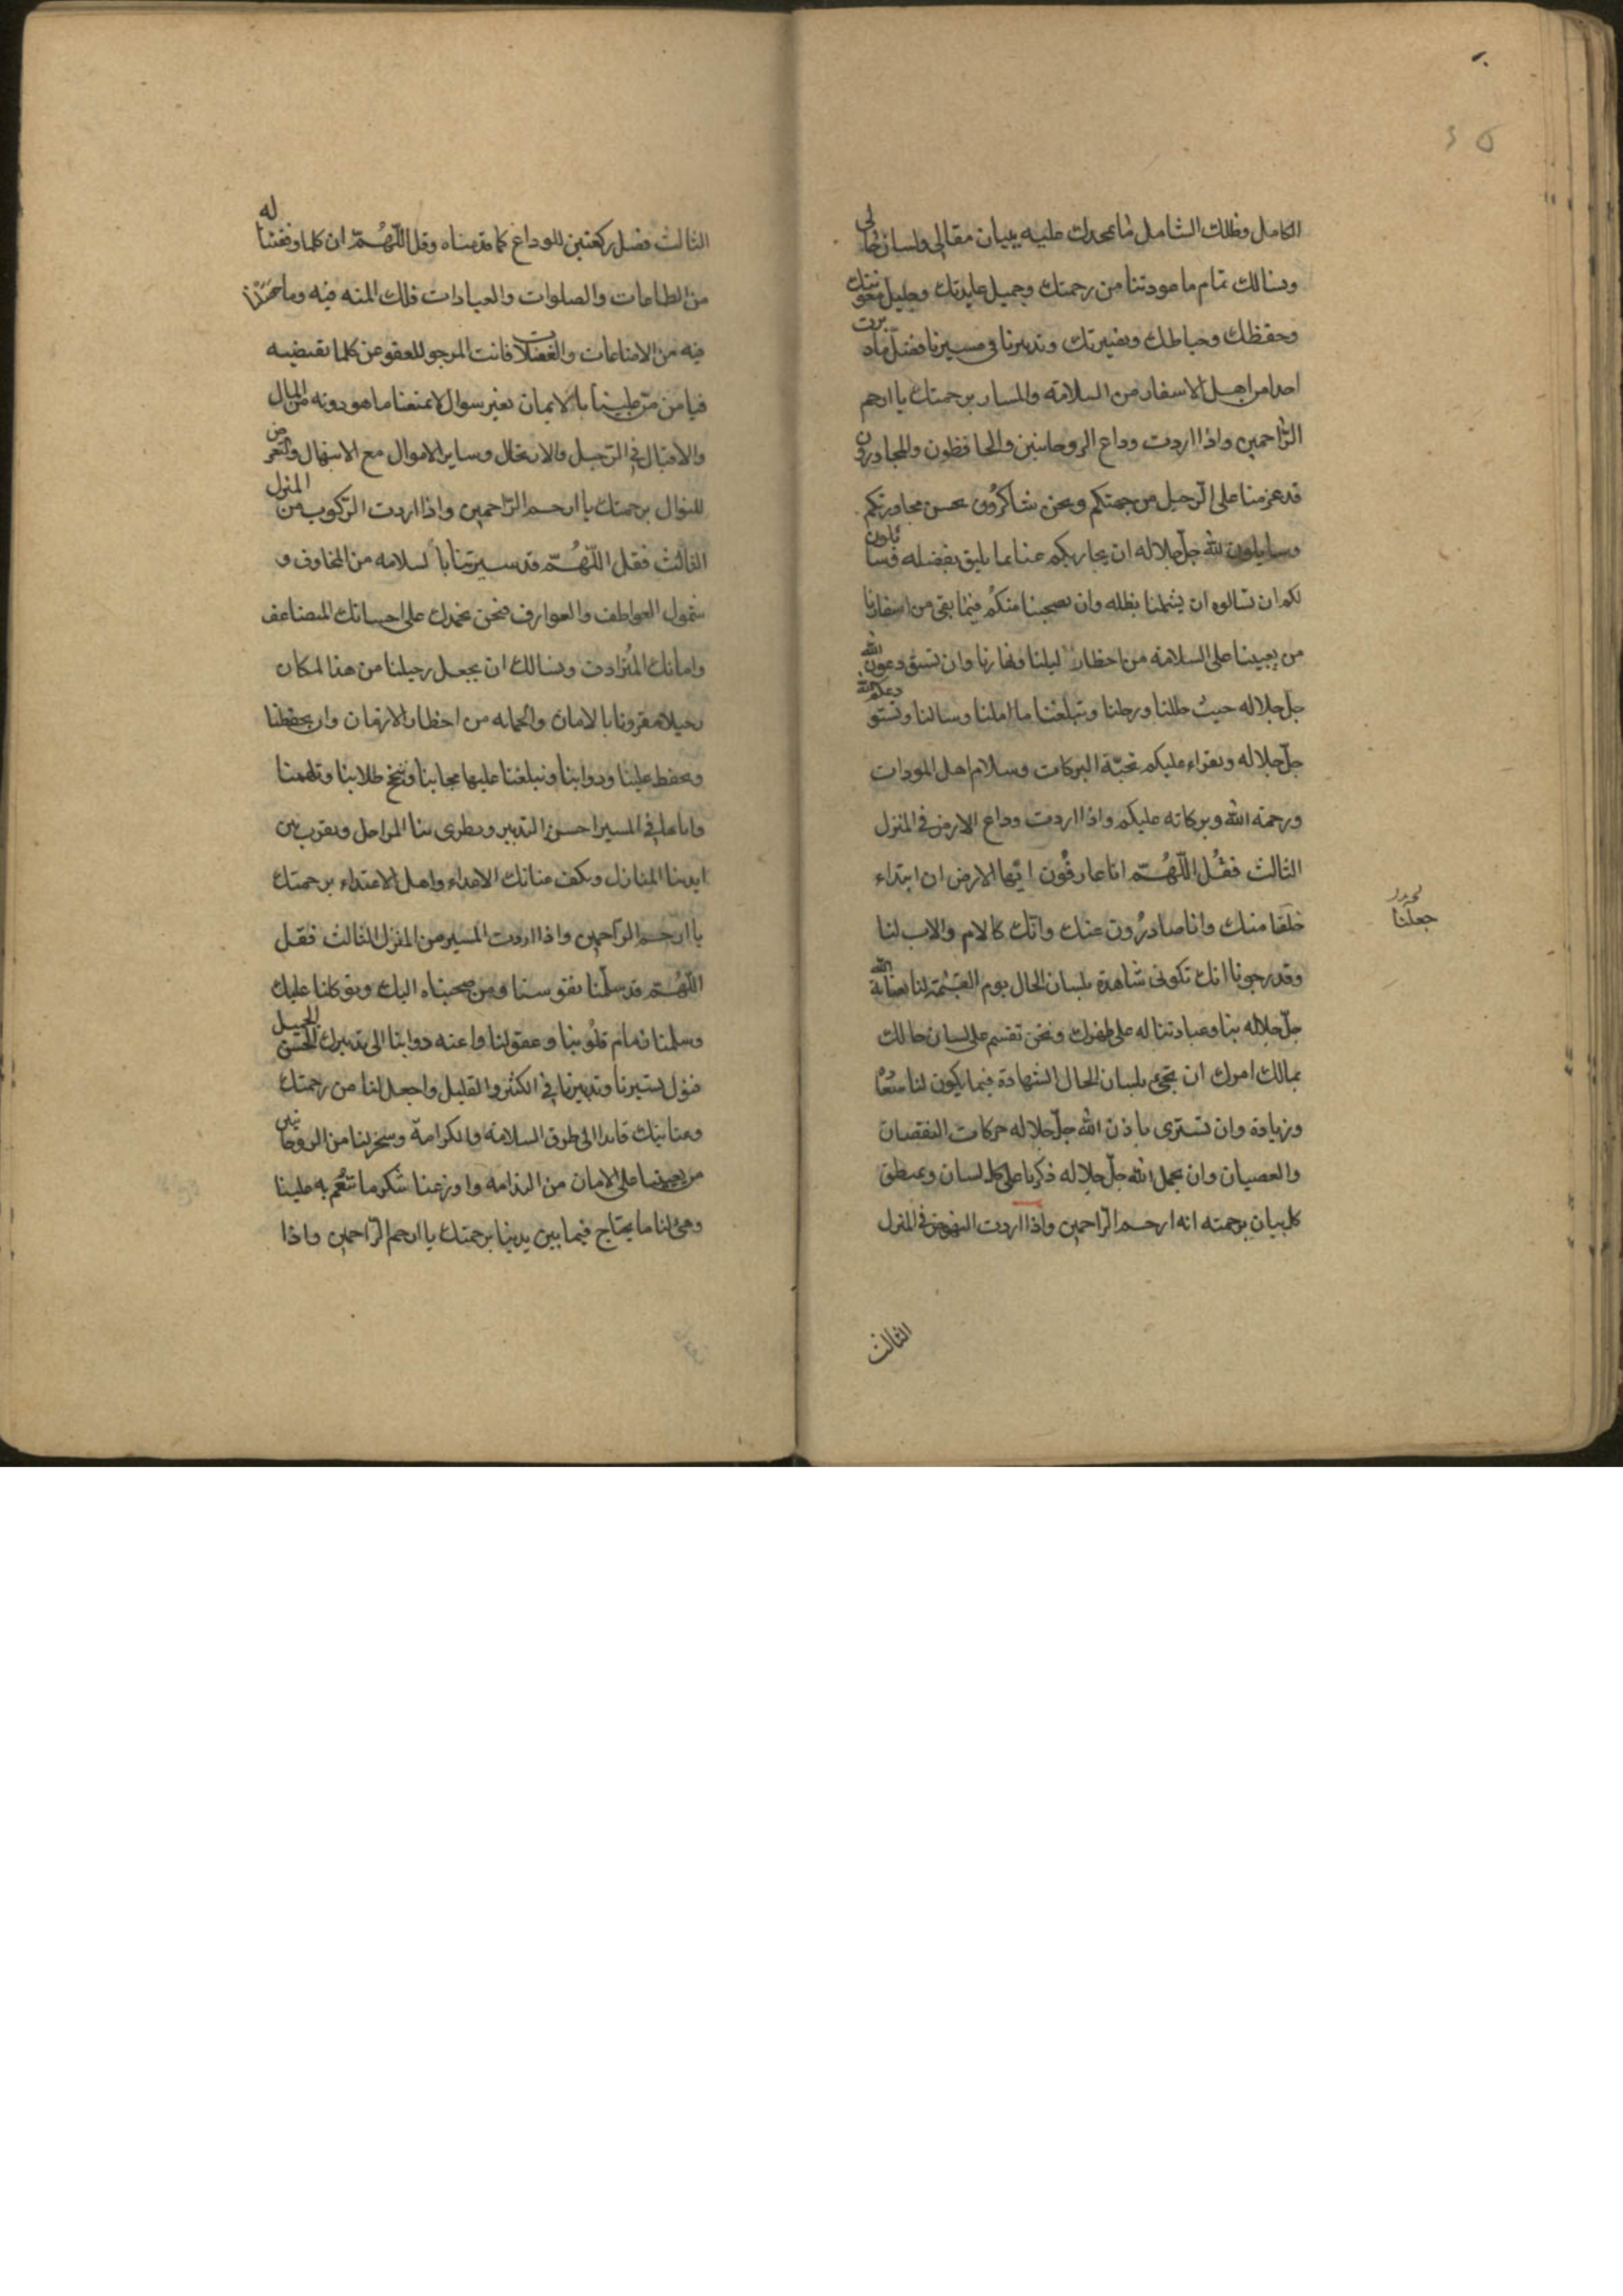 الكامل وظلك الشامل فانا نحمدك عليه ببيان مقالي ولسان حالي
ونسالك تمام ما عودتنا من رحمتك وجميل عايدتك وجليل معونتك
وحفظك وحياطتك وتدبيرنا في مسيرنا
احدا من اهل الاسفار من السلامة والمسار برحمتك يا ارحم
الراحمين واذا اردت وداع الروحانيين والحافظون والمجاورون
قد عزمنا على الرحيل من جهتكم ونحن شاكرون بحسن مجاورتكم
وسايلون لله جل جلاله ان يجازيكم عنا بما يليق بفضله فسائلون
لكم ان تسالوه ان يشملنا بظله وان يصحبنا منكم فيما بقي من اسفارنا
من يعيننا على السلامة من اخطار ليلنا ونهارنا وان
جل جلاله حيث حللنا ورحلنا وتبلغنا ما املنا وسالنا
جل جلاله ونقراء عليكم تحية البركات وسلام اهل المودات
ورحمة الله وبركاته عليكم واذا اردت وداع الارض في المنزل
الثالث فقل اللهم انا عارفون ايتها الارض ان ابتداء
خلقنا منك وانا صادرون عنك وانك كالام والاب لنا
وقد رجونا انك تكوني شاهدة بلسان الحال يوم القيمة لنا بعناية الله
جل جلاله بنا وعبادتنا له على ظهرك ونحن نقسم على لسان حالك
بمالك امرك ان تجيء بلسان الحال الشهادة فيما يكون لنا متعا
وزيادة وان تستري باذن الله جل جلاله حركات النقصان
والعصيان وان يجمل الله جل جلاله ذكرنا على كل لسان وبمنطق
كل بيان برحمته انه ارحم الراحمين واذا اردت النهوض في المنزل
الثالث
جعلنا
الثالث فصل ركعتين للوداع كما قدمناه وقل اللهم ان كلما وفقتنا له
من الطاعات والصلوات والعبادات فلك المنه فيه وما
فيه من الاضاعات والغفلات فانت المرجو للعفو عن كلما تقتضيه
فيا من من علينا بالايمان بغير سوال لا تمنعنا ما هو دونه من المال
والاقبال في الترحيل والارتحال وساير الاموال مع الابتهال والتعرض
للنوال برحمتك يا ارحم الراحمين واذا اردت الركوب من المنزل
الثالث فقل اللهم قد سيرتنا بالسلامه من المخاوف و
شمول العواطف والعوارف فنحن نحمدك على احسانك المتضاعف
وامانك المترادف ونسالك ان يجعل رحيلنا من هذا المكان
رحيلا مقرونا بالامان والحمايه من اخطار الازمان وان يحفظنا
ويحفظ علينا ودوابنا وتبلغنا عليها محابنا وتنجح طلابنا وتلهمنا
واياها في المسير احسن التدبير وتطوى بنا المراحل وتقرب بين
ايدينا المنازل وتكف عنا تلك الاعداء واهل الاعتداء برحمتك
يا ارحم الراحمين واذا اردت المسير من المنزل الثالث فقل
اللهم قد سلمنا نفوسنا ومن صحبناه اليك وتوكلنا عليك
وسلمنا زمام قلوبنا وعقولنا واعنه دوابنا الى تدبيرك الحسن الجميل
فتول تسيرنا وتدبيرنا في الكثير والقليل واجعل لنا من رحمتك
وعنايتك قايدا الى طرق السلامة والكرامة وسخر لنا من الروحانيين
من يعيننا على الامان من الندامة واوزعنا شكر ما تنعم به علينا
وهيئ لنا ما يحتاج فيما بين يدينا برحمتك يا ارحم الراحمين واذا